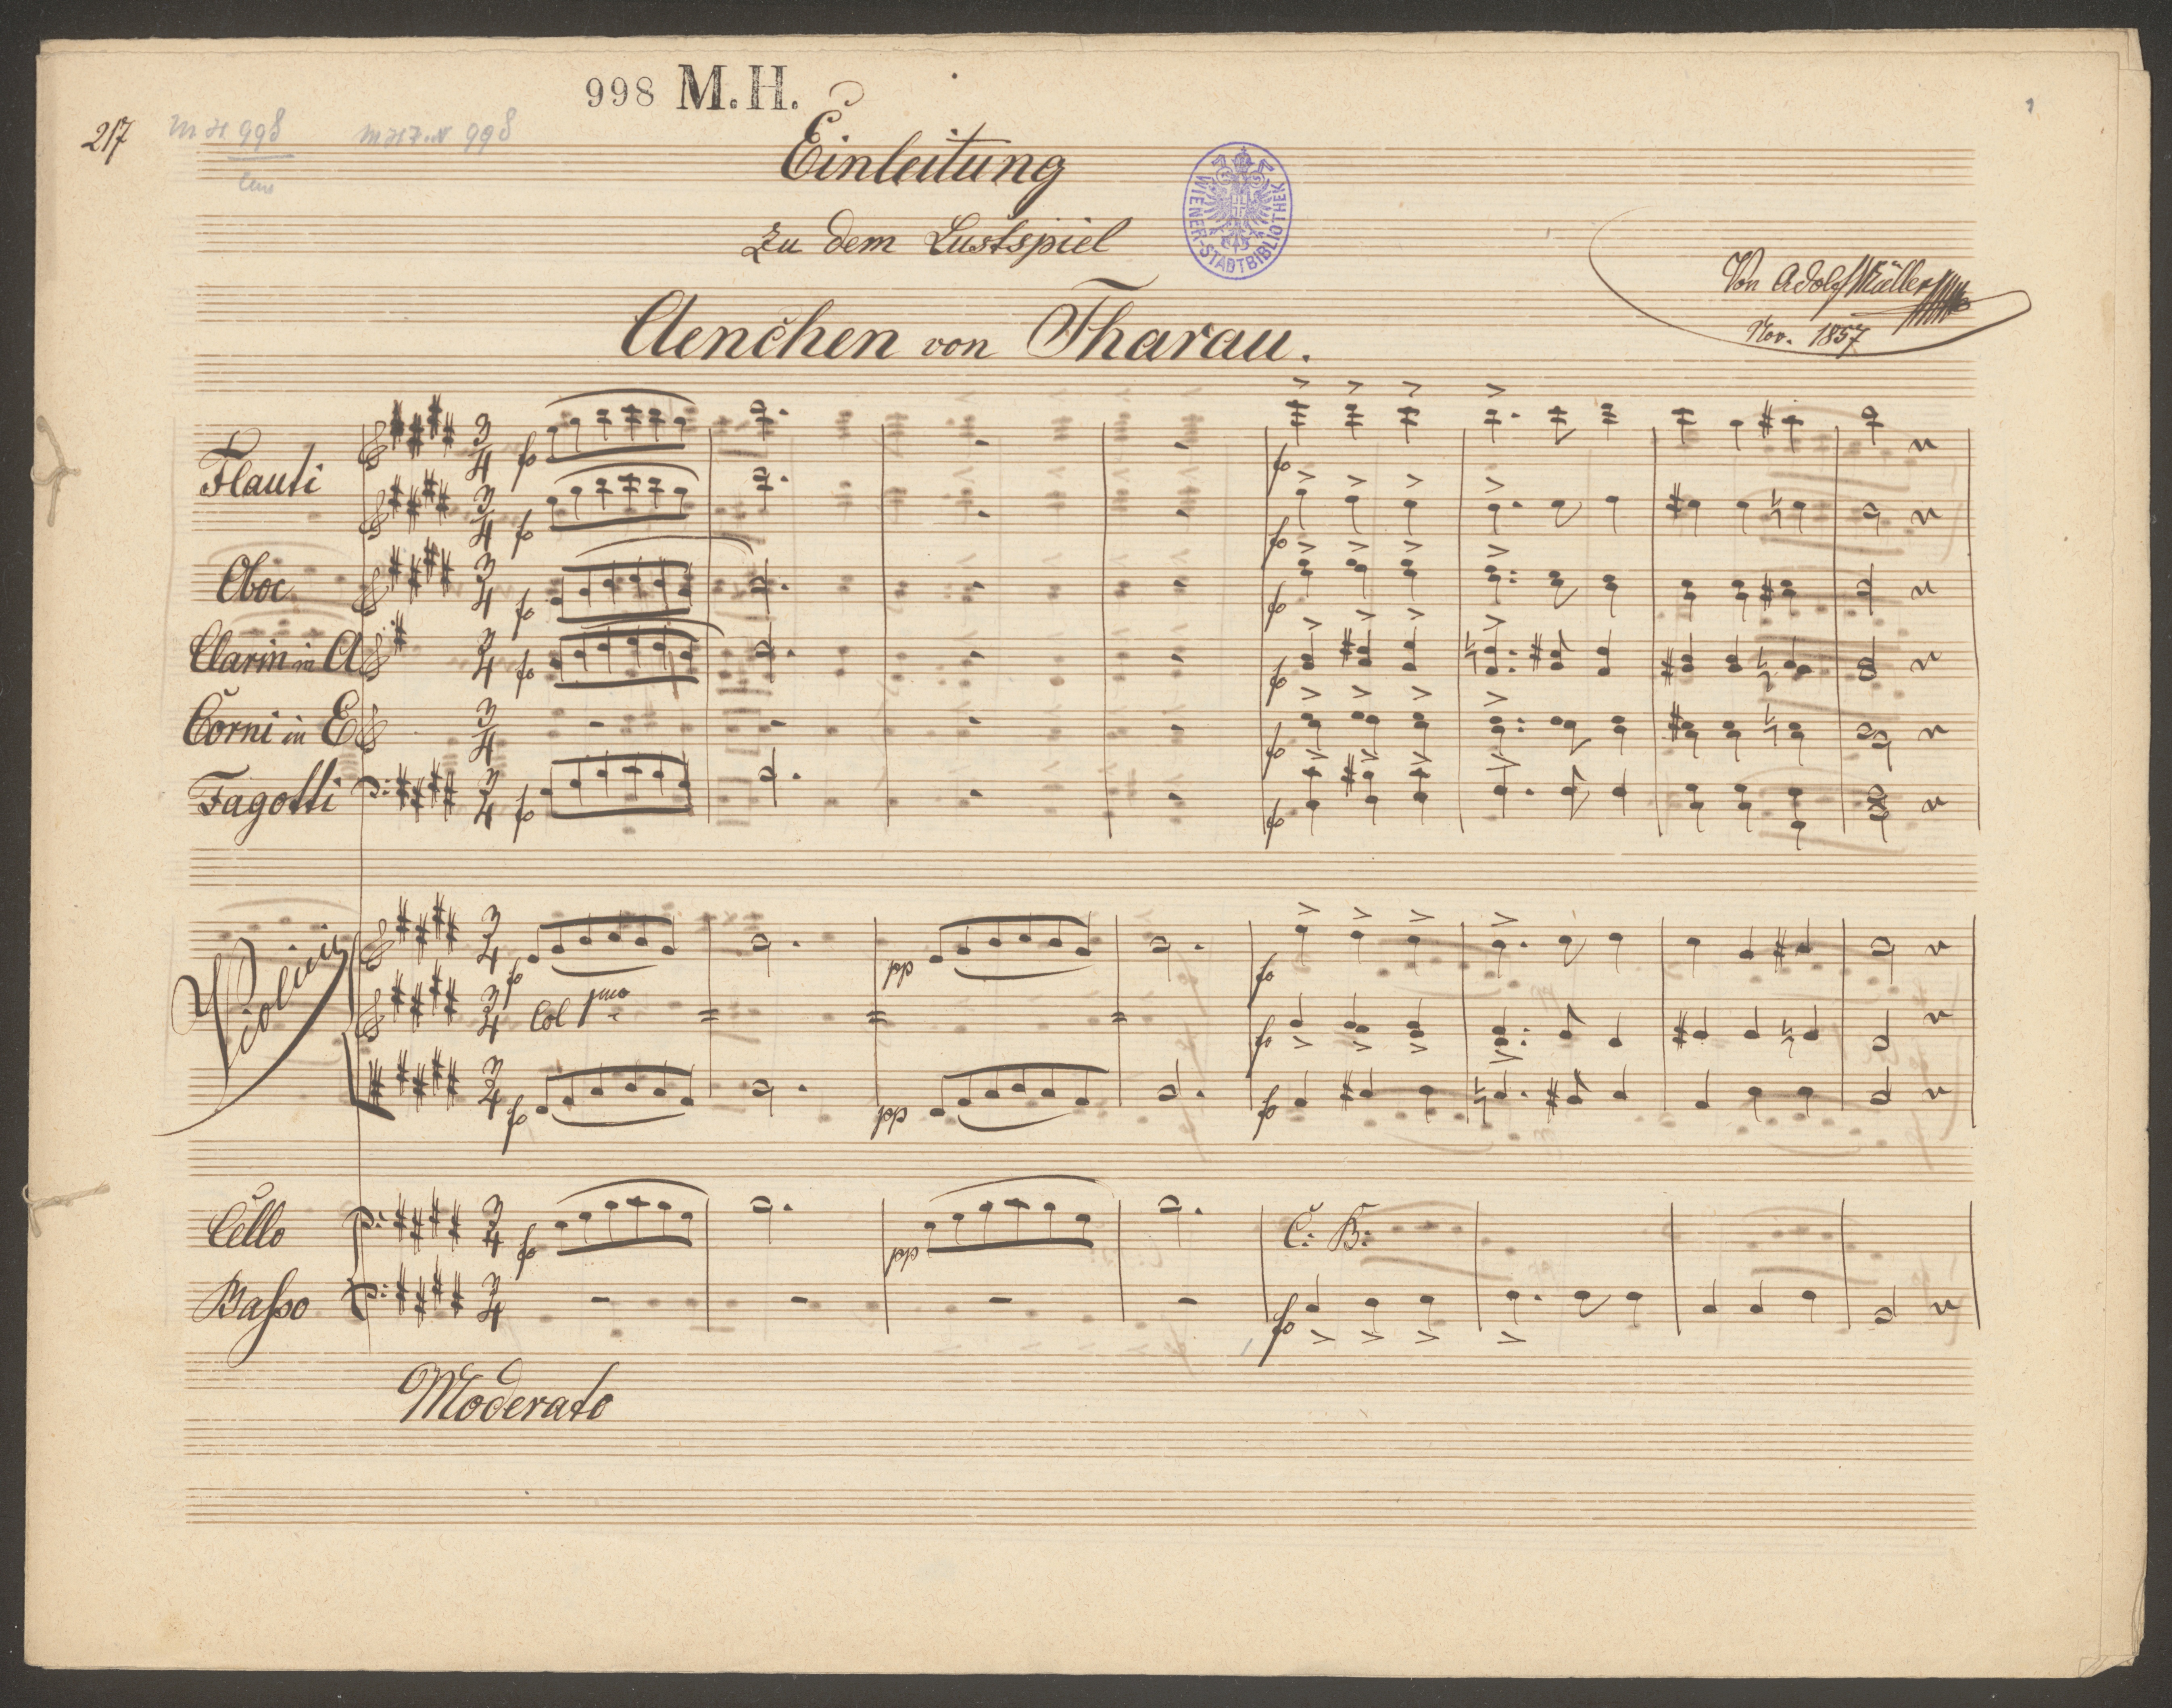 998 M. H.
217
M H 998
Einleitung
WIENER-STADTBIBLIOTHEK
zu dem Lustspiel
Von Adolf Müller
Nov. 1857
Aenchen von Tharau.
Flauti
Oboe
Clarin in A
Corni in E
Fagotti
3/4
fo
Violini
Col 1mo
pp
pp
Cello
C: B:
Basso
Moderato